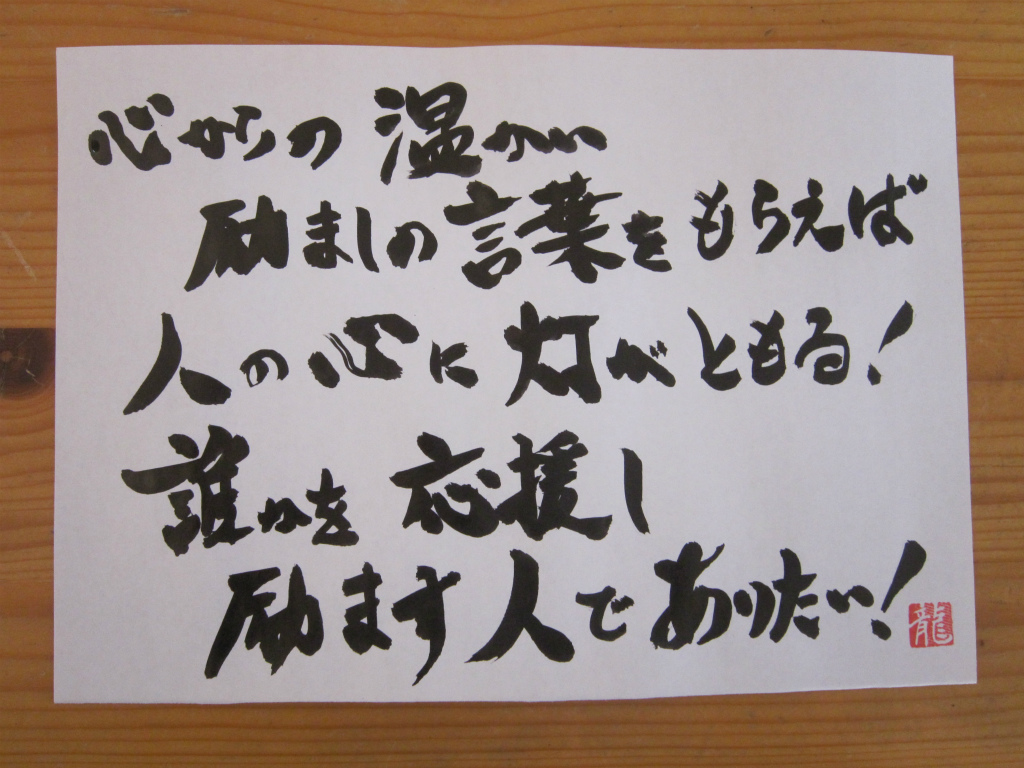 心からの温かい
励ましの言葉をもらえば
人の心に灯がともる!
誰かを応援し
励ます人でありたい!
龍